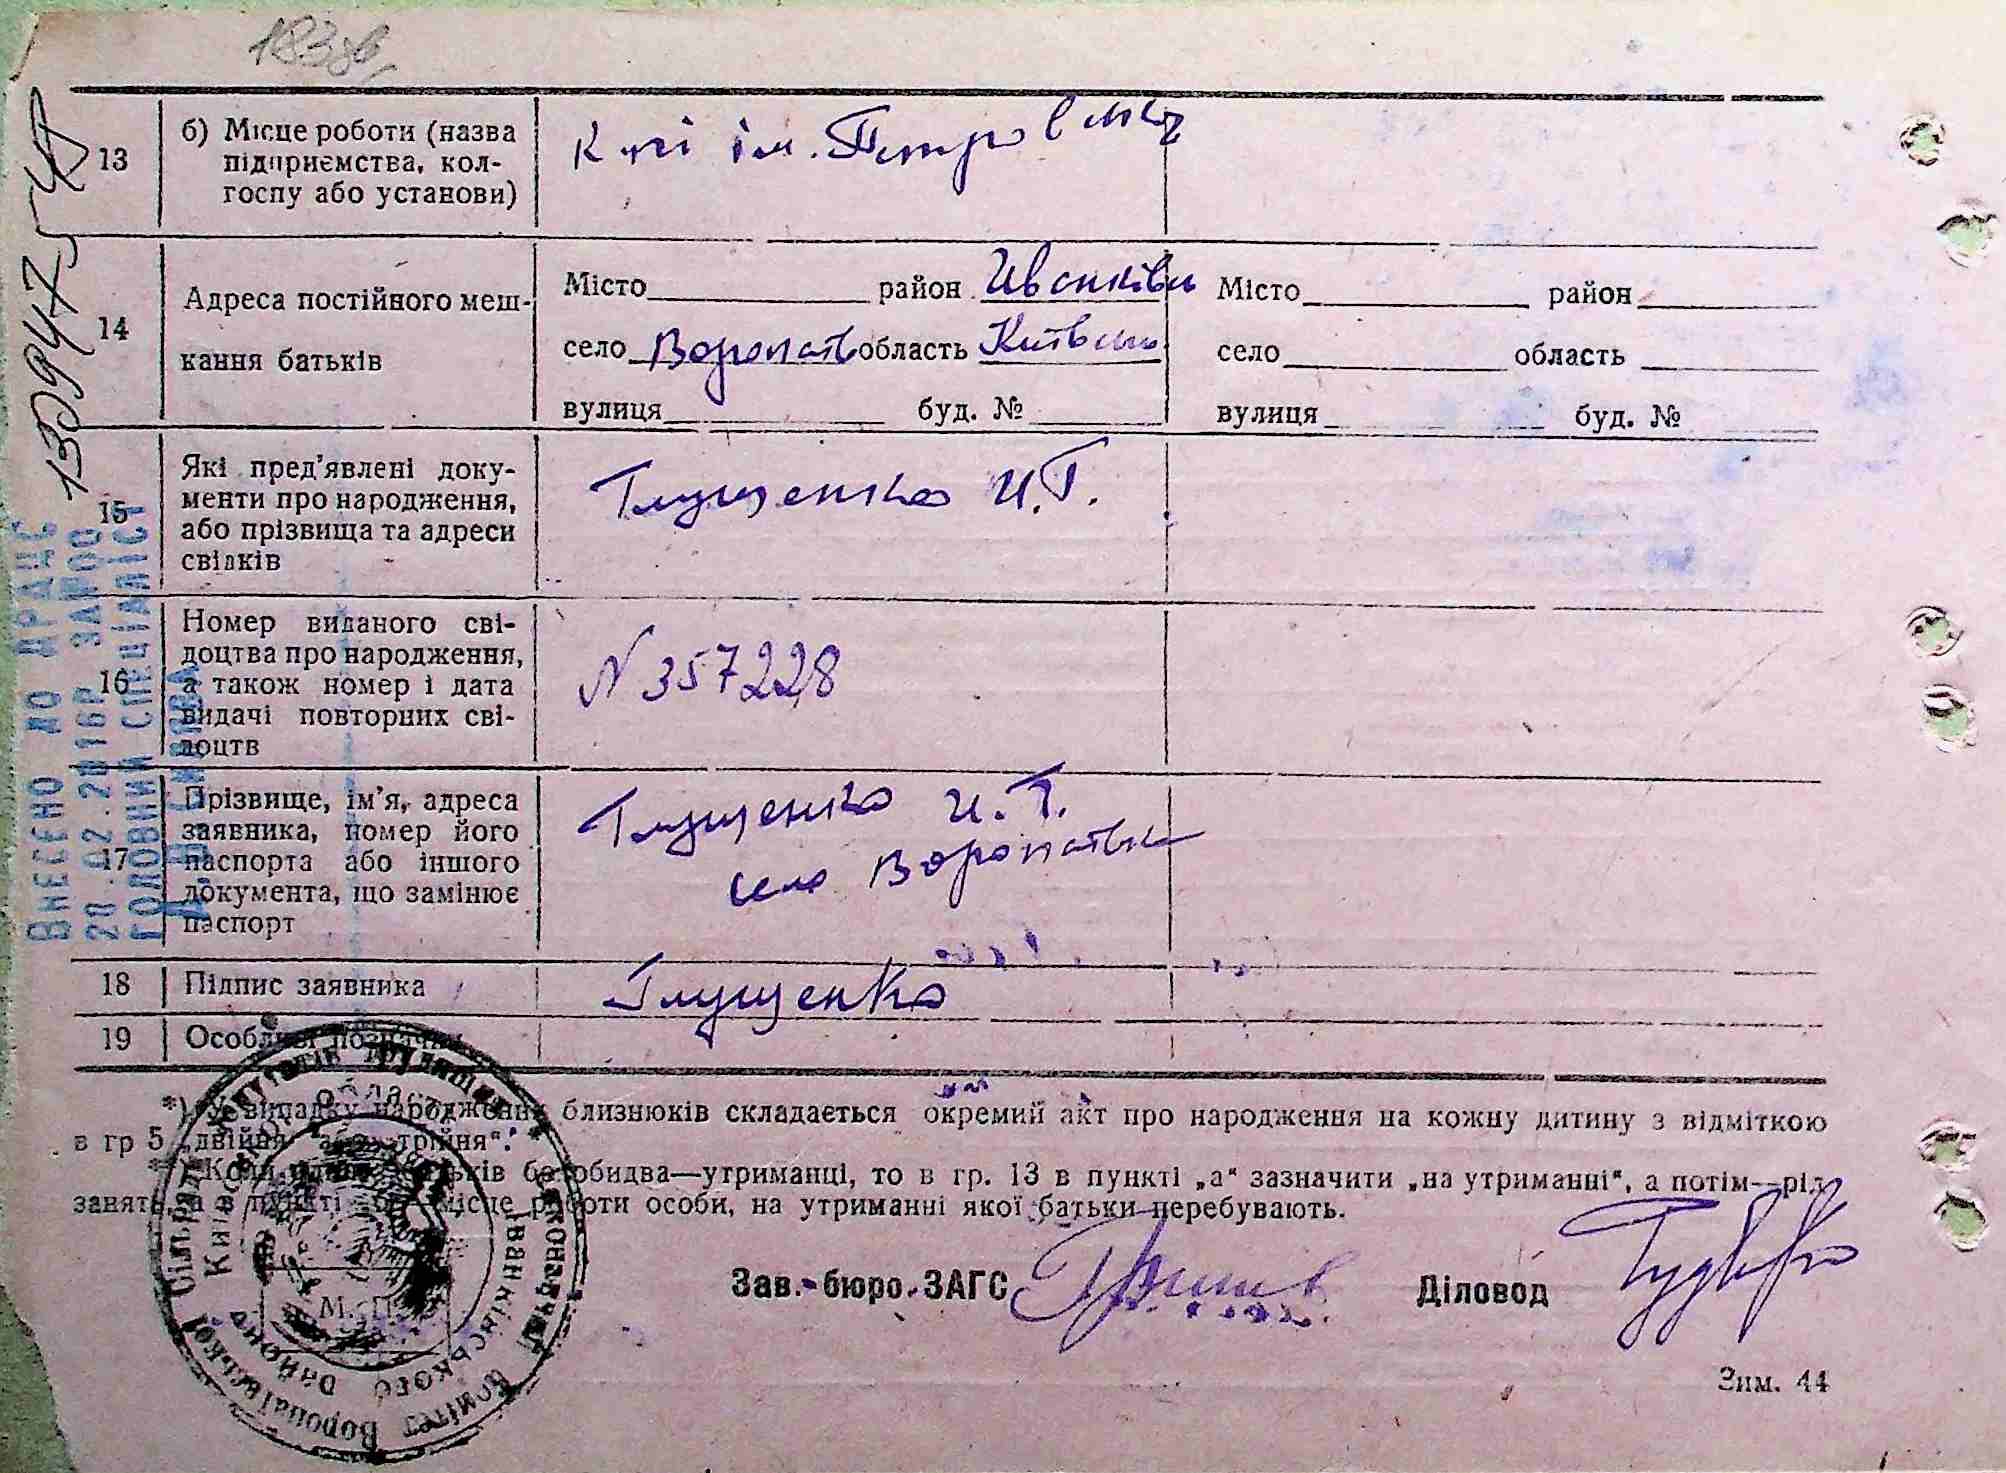 183 зв
13094754
13
б) Місце роботи (назва
підприємства, кол-
госпу або установи)
К-гсі ім. Петровськ
14
Адреса постійного меш-
кання батьків
Місто район Иванківсь
село Воропаївк область Київськ
вулиця буд. №
Місто район
село область
вулиця буд. №
15
Які пред’явлені доку-
менти про народження,
або прізвища та адреси
свідків
Глущенко И.Г.
16
Номер виданого сві-
доцтва про народження,
а також номер і дата
видачі повторних сві-
доцтв
N 357228
17
Прізвище, ім’я, адреса
заявника, номер його
паспорта або іншого
документа, що замінює
паспорт
Глущенко И.Г.
село Воропаївка
18
Підпис заявника
Глущенко
19
Особливі позначки
ВНЕСЕНО ДО ДРАЦС
20.02.2016Р ЗАГОО
ГОЛОВНИЙ СПЕЦІАЛІСТ
*) У випадку народження близнюків складається окремий акт про народження на кожну дитину з відміткою
в гр 5 „двійня“ або „трійня“.
Коли батьків або обидва—утриманці, то в гр. 13 в пункті „а“ зазначити „на утриманні“, а потім—рід
занять, а в пункті місце роботи особи, на утриманні якої батьки перебувають.
Зав. бюро ЗАГС
Діловод
М. П.
Виконавчий Комітет Воропаївської Сільради депутатів трудящих
Іванківського району Київської області
Зим. 44